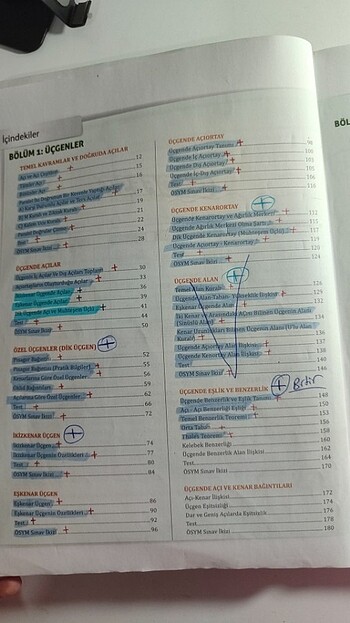 İçindekiler
BÖLÜM 1: ÜÇGENLER
TEMEL KAVRAMLAR VE DOĞRUDA AÇILAR
12
15
16
17
19
21
22
24
28
Test
ÖSYM Sınav İkizi
ÜÇGENDE AÇILAR
Üçgende İç ve Dış Açıları Toplamı 30
Açıortayların Oluşturduğu Açılar 33
İkizkenar Üçgende Açılar 36
Eşkenar Üçgende Açılar 39
Dik Üçgende Açı ve Muhteşem Üçlü 41
Test 44
ÖSYM Sınav İkizi 50
ÖZEL ÜÇGENLER (DİK ÜÇGEN)
Pisagor Bağıntısı 52
Pisagor Bağıntısı (Pratik Bilgiler) 55
Kenarlarına Göre Özel Üçgenler 56
Öklid Bağıntıları 59
Açılarına Göre Özel Üçgenler 62
Test 66
ÖSYM Sınav İkizi 72
İKİZKENAR ÜÇGEN
İkizkenar Üçgen 74
İkizkenar Üçgenin Özellikleri 77
Test 80
ÖSYM Sınav İkizi 84
EŞKENAR ÜÇGEN
Eşkenar Üçgen 86
Eşkenar Üçgenin Özellikleri 90
Test 92
ÖSYM Sınav İkizi 96
ÜÇGENDE AÇIORTAY
Üçgende Açıortay Tanımı 98
Üçgende İç Açıortay 100
Üçgende Dış Açıortay 103
Üçgende İç-Dış Açıortay 105
Test
ÖSYM Sınav İkizi 110
ÜÇGENDE KENARORTAY
Üçgende Kenarortay ve Ağırlık Merkezi 112
Üçgende Ağırlık Merkezi Olma Şartları
Dik Üçgende Kenarortay (Muhteşem Üçlü) 117
Üçgende Açıortay - Kenarortay 119
Test
ÖSYM Sınav İkizi 124
ÜÇGENDE ALAN
Temel Alan Kuralı 126
Üçgende Alan Tabanı - Yükseklik İlişkisi 129
Eşkenar Üçgende Alan 132
İki Kenar Arasındaki Açısı Bilinen Üçgenin Alanı
134
Kenar Uzunlukları Bilinen Üçgenin Alanı (U'lu Alan
Kuralı) 136
Üçgende Açıortay Alan İlişkisi 137
Üçgende Kenarortay Alan İlişkisi 138
Test 140
ÖSYM Sınav İkizi 146
ÜÇGENDE EŞLİK VE BENZERLİK
Üçgende Benzerlik ve Eşlik Tanımı 148
Açı - Açı Benzerliği 150
Temel Benzerlik Teoremi 153
Orta Taban 156
Thales Teoremi 158
Kelebek Benzerliği 160
Üçgende Benzerlik Alan İlişkisi 162
Test 164
ÖSYM Sınav İkizi 170
ÜÇGENDE AÇI VE KENAR BAĞINTILARI
Açı-Kenar İlişkisi 172
Üçgen Eşitsizliği 174
Dar ve Geniş Açılarda Eşitsizlik 176
Test 178
ÖSYM Sınav İkizi 180
BÖL